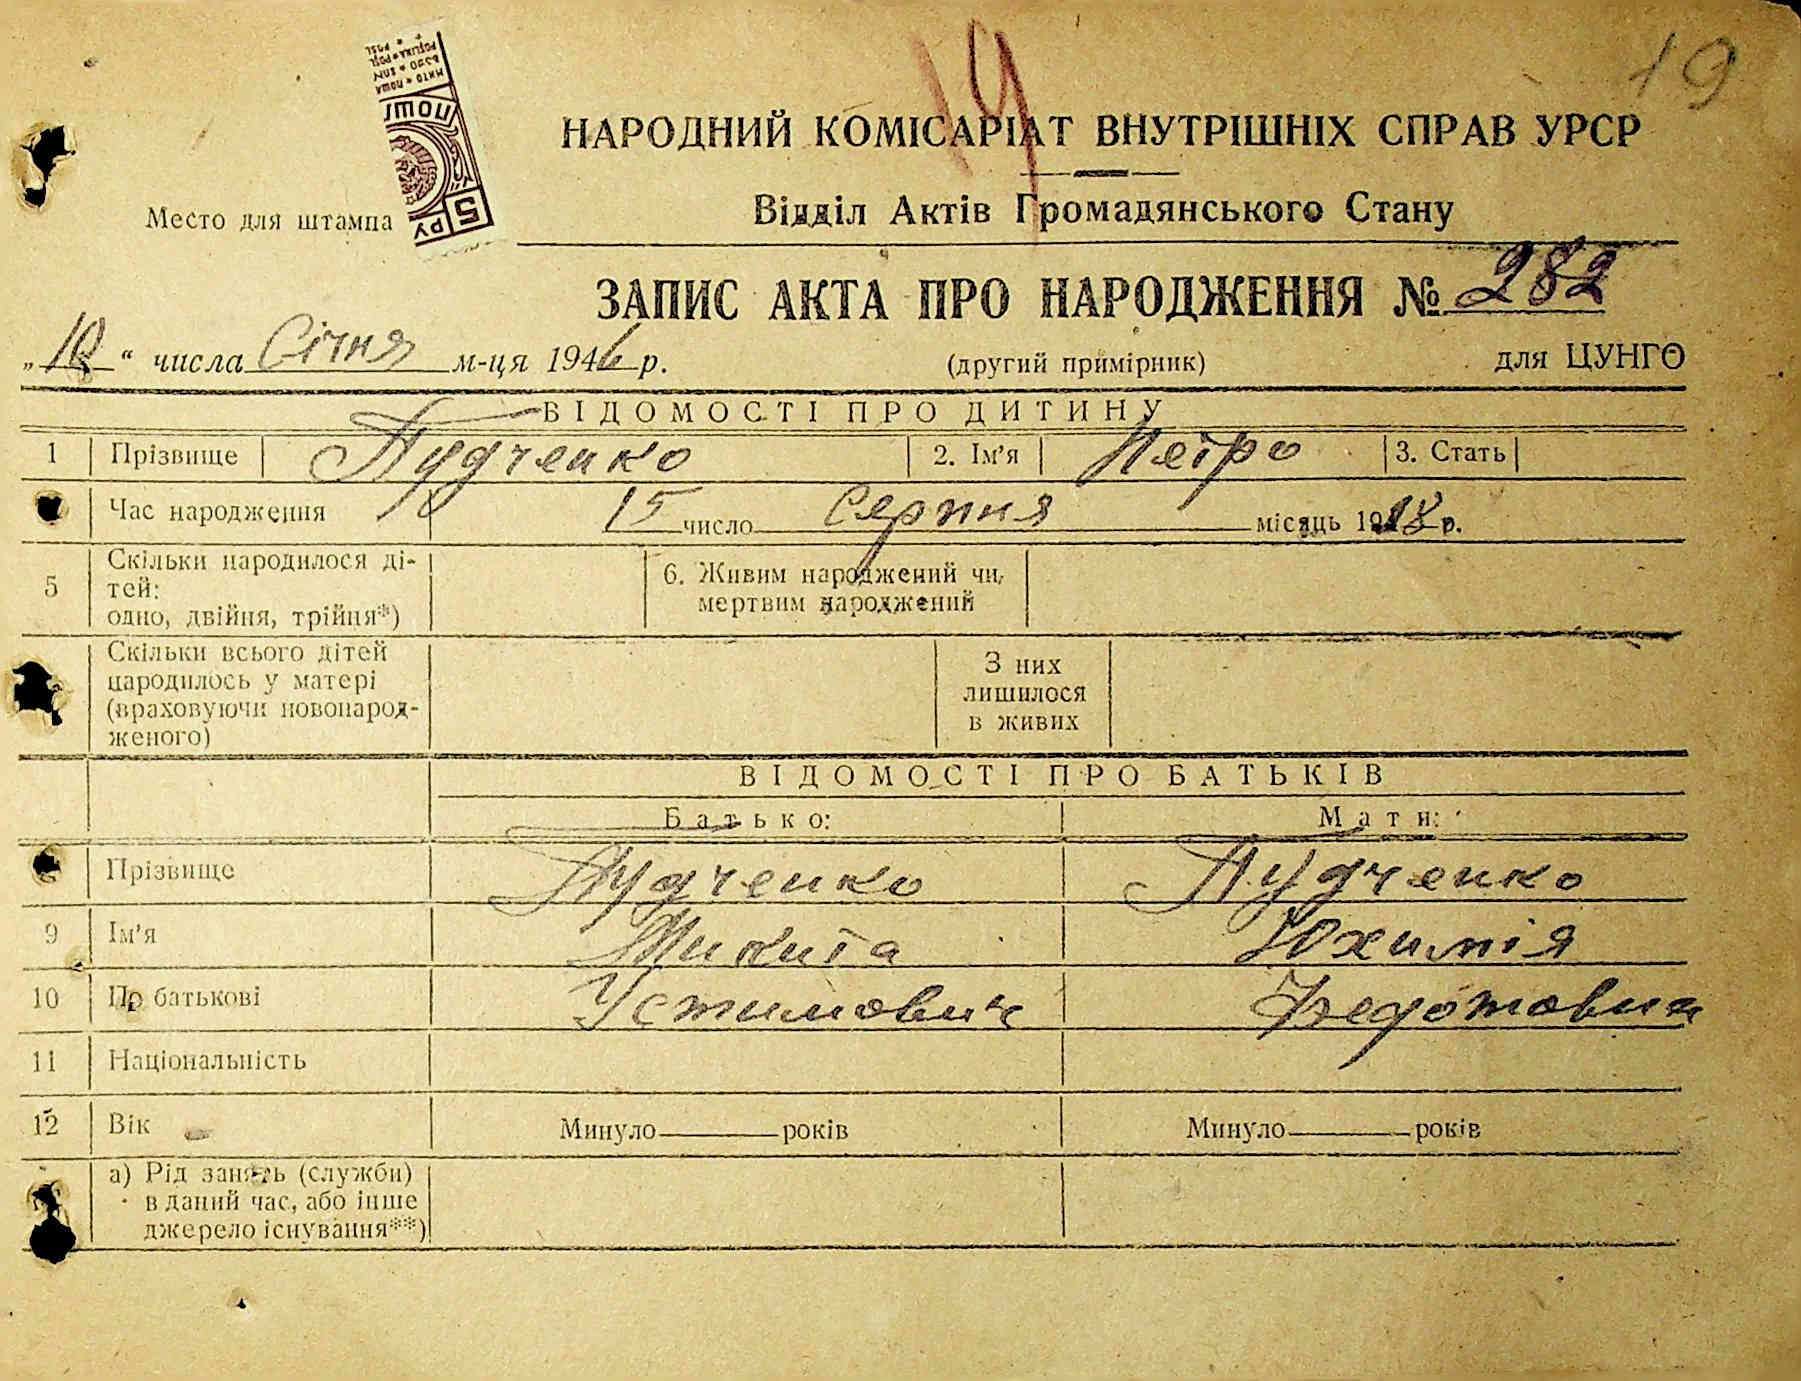 19
19
НАРОДНИЙ КОМІСАРІАТ ВНУТРІШНІХ СПРАВ УРСР
Відділ Актів Громадянського Стану
Место для штампа
ПОШТ
5 РУ
ЗАПИС АКТА ПРО НАРОДЖЕННЯ № 282
„10“ числа Січня м-ця 1946 р. (другий примірник) для ЦУНГО
ВІДОМОСТІ ПРО ДИТИНУ
1 Прізвище Пудченко 2. Ім'я Петро 3. Стать
Час народження 15 число Серпня місяць 1918 р.
5 Скільки народилося ді-
тей:
одно, двійня, трійня*)
6. Живим народжений чи
мертвим народжений
Скільки всього дітей
народилось у матері
(враховуючи новонарод-
женого)
З них
лишилося
в живих
ВІДОМОСТІ ПРО БАТЬКІВ
Батько: Мати:
Прізвище Пудченко Пудченко
9 Ім'я Микита Юхимія
10 По батькові Устимович Федотовна
11 Національність
12 Вік Минуло років Минуло років
а) Рід занять (служби)
в даний час, або інше
джерело існування**)